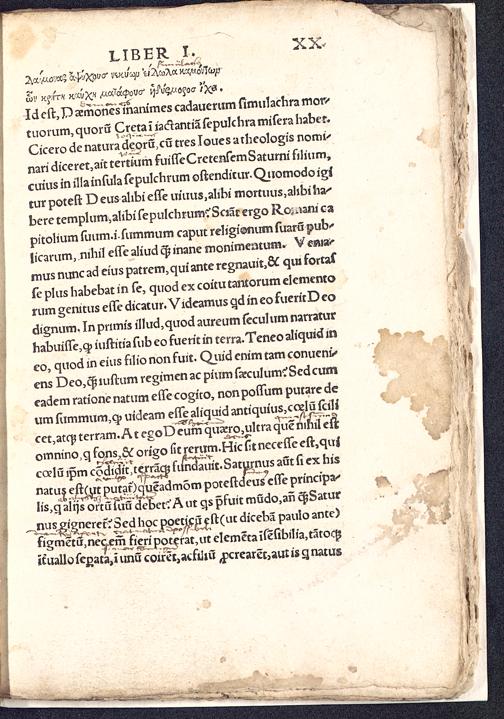 LIBER I. XX.
Id est, Dæmones inanimes cadauerum simulachra mor-
tuorum, quorū Creta ī iactantiā sepulchra misera habet.
Cicero de natura deorū, cū tres Ioues a theologis nomi-
nari diceret, ait tertium fuisse Cretensem Saturni filium,
cuius in illa insula sepulchrum ostenditur. Quomodo igi
tur potest Deus alibi esse uiuus, alibi mortuus, alibi ha-
bere templum, alibi sepulchrum? Sciāt ergo Romani ca
pitolium suum .i. summum caput religionum suarū pub-
licarum, nihil esse aliud q̄ inane monimentum. Venia-
mus nunc ad eius patrem, qui ante regnauit, & qui fortas
se plus habebat in se, quod ex coitu tantorum elemento
rum genitus esse dicatur. Videamus qd in eo fuerit Deo
dignum. In primis illud, quod aureum seculum narratur
habuisse, q iustitia sub eo fuerit in terra. Teneo aliquid in
eo, quod in eius filio non fuit. Quid enim tam conueni-
ens Deo, q̄ iustum regimen ac pium sæculum? Sed cum
eadem ratione natum esse cogito, non possum putare de
um summum, q uideam esse aliquid antiquius, cœlū scili
cet, atq; terram. At ego Deum quæro, ultra quē nihil est
omnino, q fons, & origo sit rerum. Hic sit necesse est, qui
cœlū ipm cōdidit, terrāq; fundauit. Saturnus aūt si ex his
natus est (ut putat̄) quēadmōm potest deus esse principa-
lis, q alijs ortū suū debet? Aut qs p̄fuit mūdo, añ q̄ Satur
nus gigneret̄? Sed hoc poeticū est (ut dicebā paulo ante)
figmētū, nec em̄ fieri poterat, ut elemēta īsēsibilia, tātoq;
īt̄uallo sepata, ī unū coirēt, ac filiū pcrearēt, aut is q natus